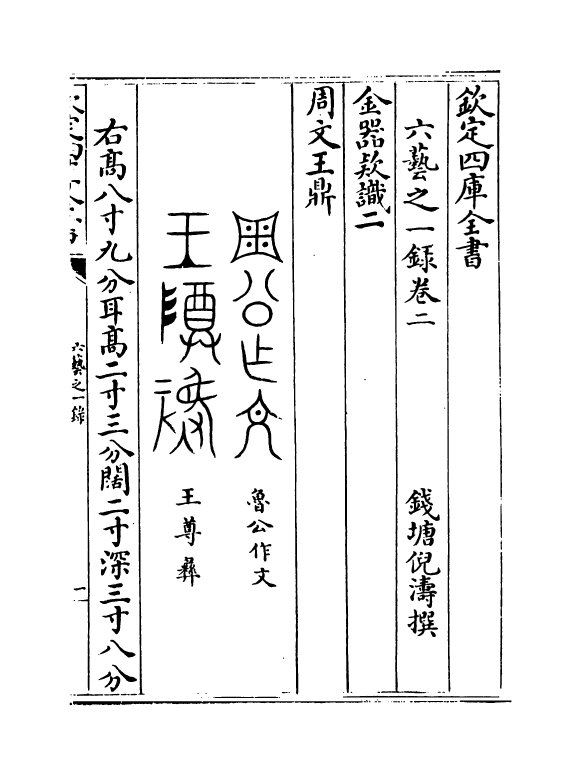 欽定四庫全書
六藝之一錄卷二
錢塘倪濤撰
金器欵識二
周文王鼎
魯公作文
王尊彝
右髙八寸九分耳髙二寸三分闊二寸深三寸八分
六藝之一錄